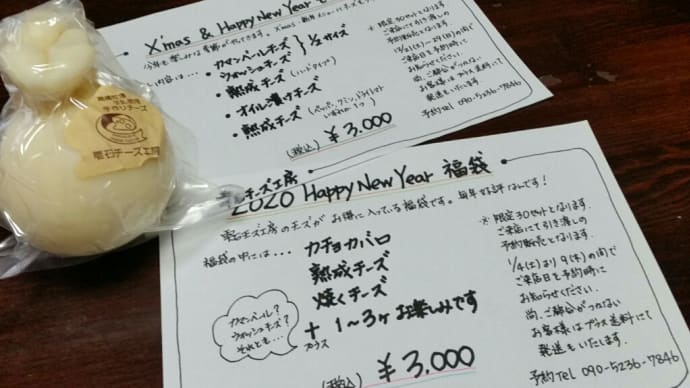 X'mas & Happy New Year
内容は…
・カマンベールチーズ
・ウォッシュチーズ
1/2サイズ
・熟成チーズ(ハードタイプ)
・オイル漬けチーズ
・熟成チーズ
いずれか1つ)
(税込) ¥3,000
※限定30セットとなります。
ご来店にて引き渡しの
予約販売となります。
ご来店日を予約時に
お知らせください。
尚、ご都合がつかない
お客様はプラス送料にて
発送もいたします。
予約Tel 090-5236-7846
手作りチーズ
雫石チーズ工房
チーズ工房
2020 Happy New Year 福袋
雫石チーズ工房のチーズがお得に入っている福袋です。毎年好評なんです!
福袋の中には…
カチョカバロ
熟成チーズ
焼くチーズ
+ 1~3ヶお楽しみです
プラス
カマンベール?
ウォッシュチーズ?
それとも…
(税込) ¥3,000
※限定30セットとなります。
ご来店にて引き渡しの
予約販売となります。
1/4(土)より9(木)の間で
ご来店日を予約時に
お知らせください。
尚、ご都合がつかない
お客様はプラス送料にて
発送もいたします。
予約Tel 090-5236-7846